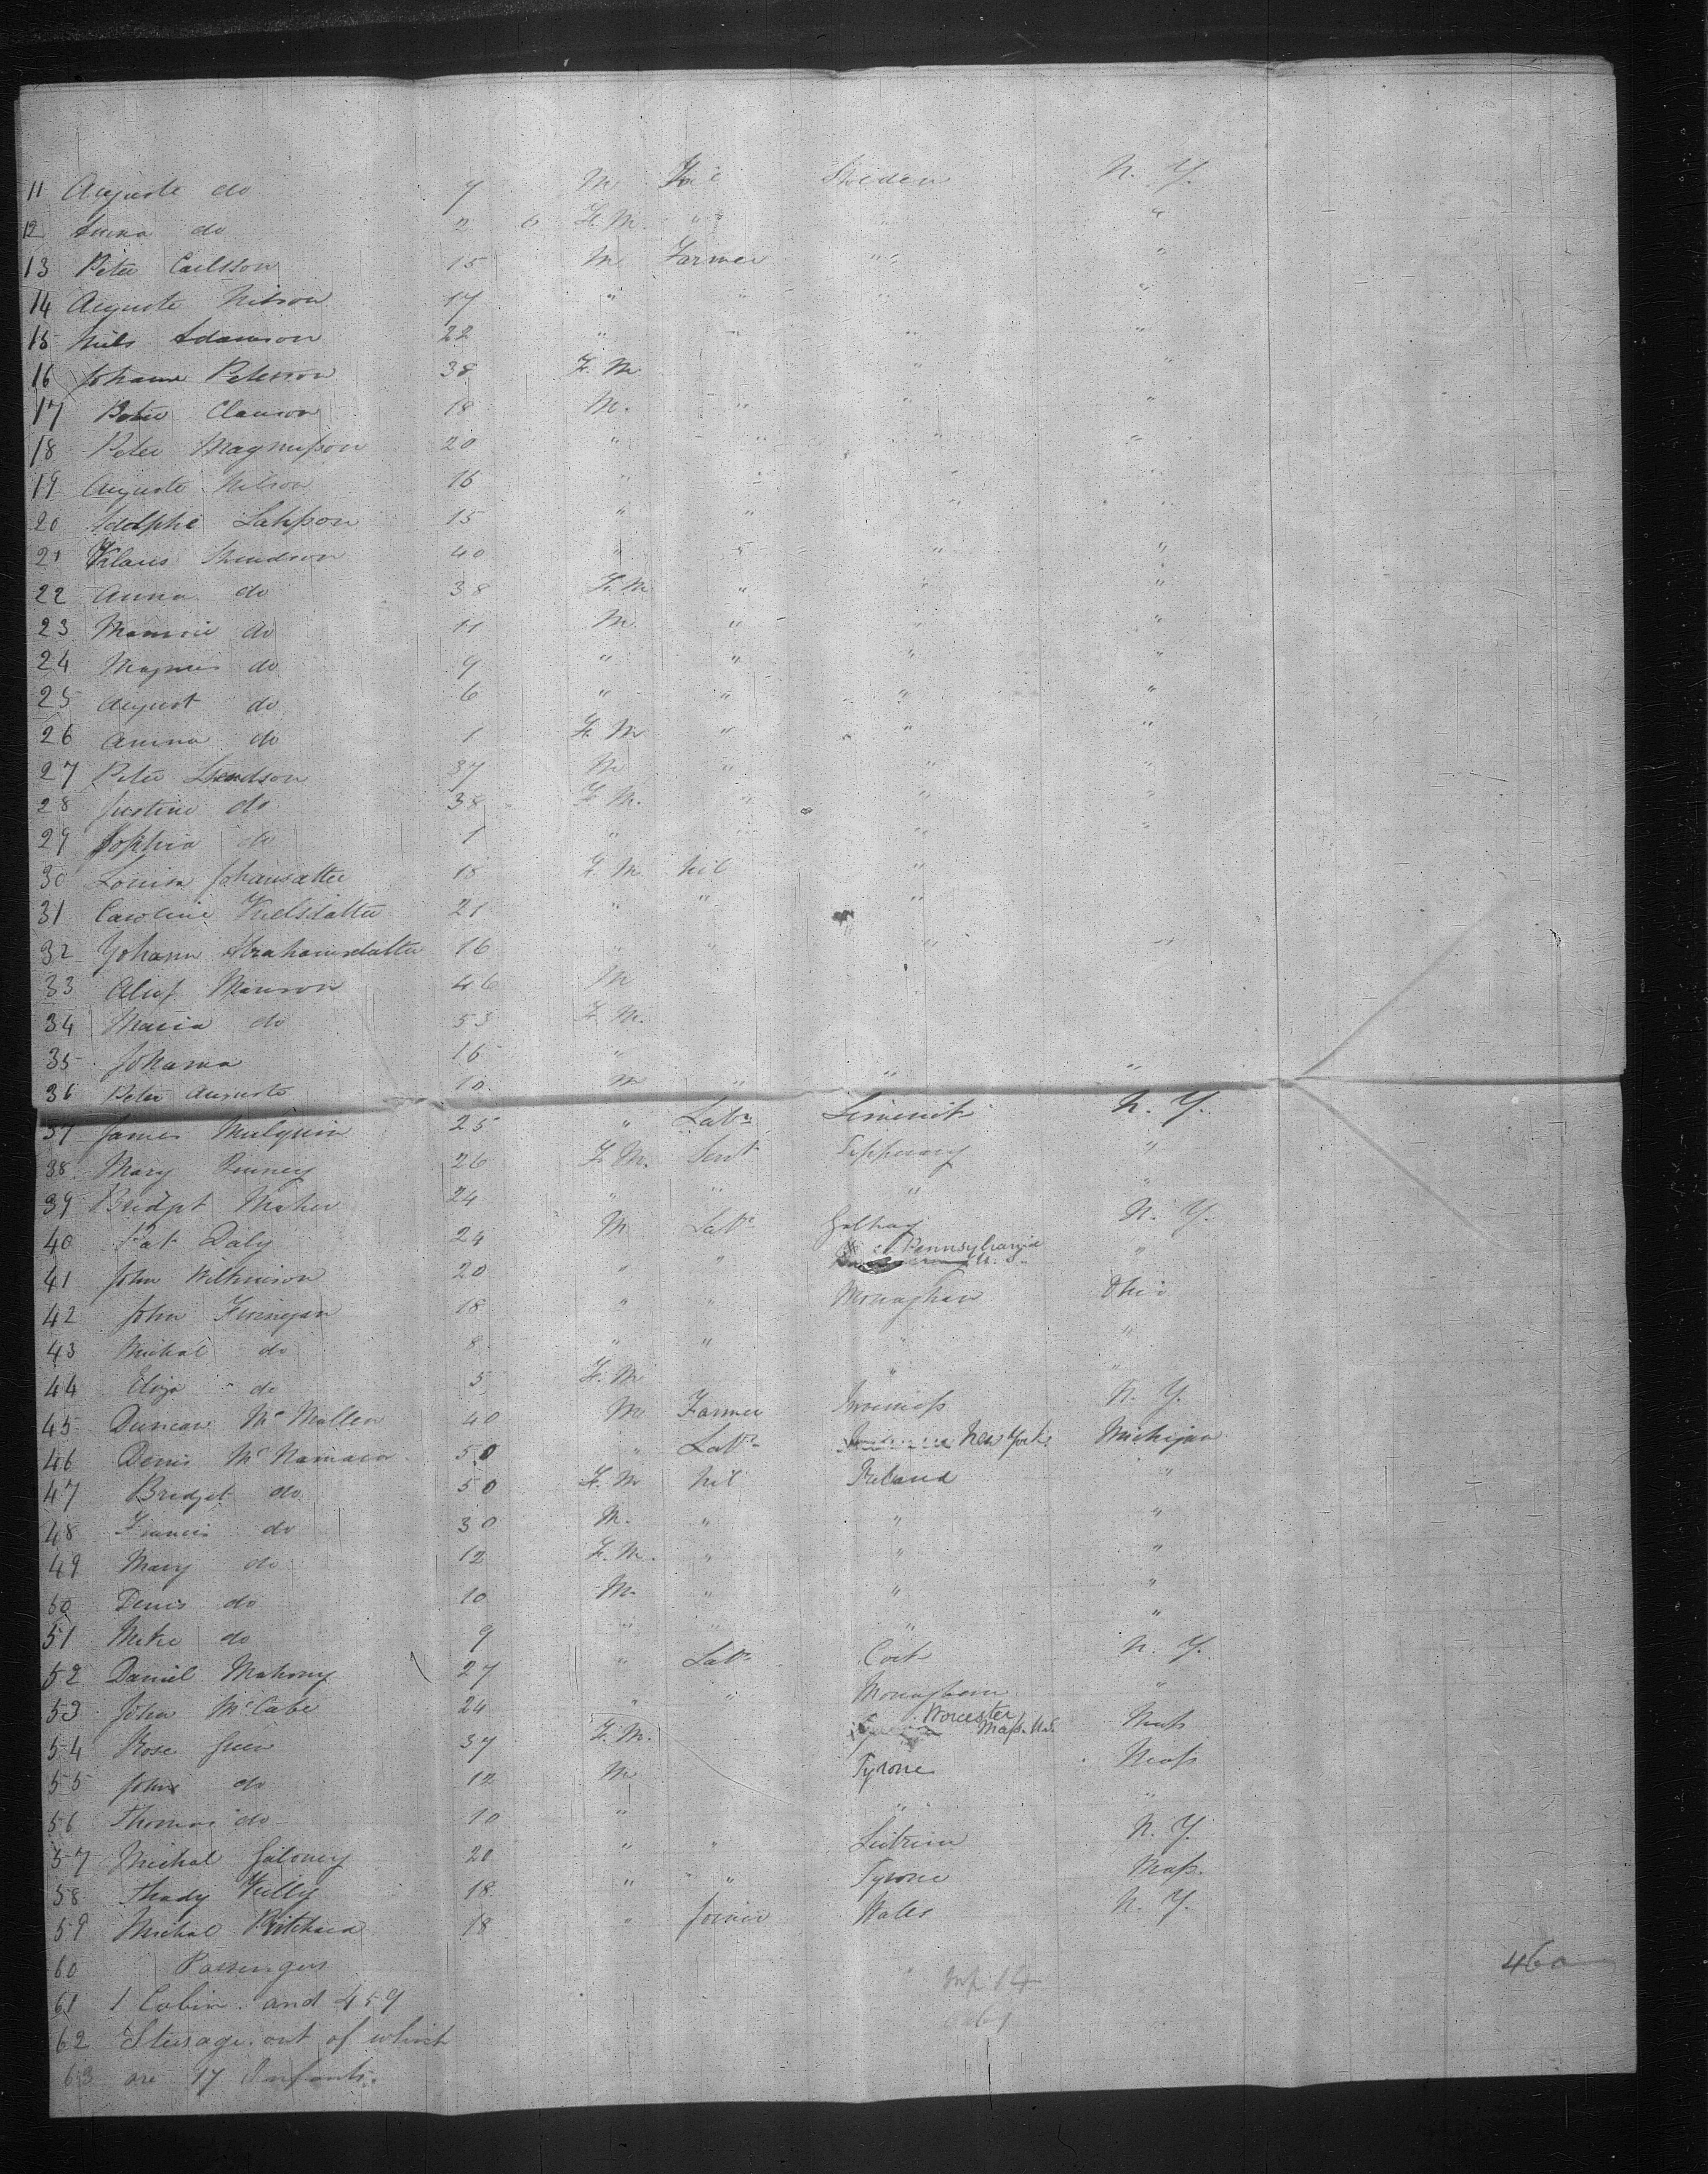 11 Auguste do 7 M. Nil Sweden N. Y.
12 Anna do 2 F. M. " " "
13 Peter Carlsson 15 M Farmer " "
14 Auguste Nilson 17 " " " "
15 Nils Adamson 22 " " " "
16 Johann Peterson 38 F. M. " "
17 Clauson 18 M. " " "
18 Peter Magnusson 20 " " " "
19 Auguste Nilson 16 " " " "
20 Adolphe 15 " " " "
21 Klaus 40 " " " "
22 Anna do 38 F. M " " "
23 do 11 M. " " "
24 Magnus do 9 " " " "
25 August do 6 " " " "
26 Anna do 1 F. M " " "
27 Peter 37 M " " "
28 Justine do 38 F. M. " " "
29 Sophia do 1 " " " "
30 Louisa 18 F. M. Nil "
31 Caroline 21 " " "
32 Johann Abrahamsdatter 16 " " " "
33 46 M
34 Maria do 53 F. M.
35 Johanna 16 "
36 Peter Auguste 10. M " " "
37 James Mulquin 25 " Labr Limerick N. Y.
38 Mary 26 F. M. Servt Tipperary "
39 Bridget Maher 24 " " " "
40 Pat Daly 24 M Labr Galway N. Y.
41 John Wilkinson 20 " " Pennsylvania U. S. "
42 John Finnegan 18 " " Monaghan Ohio
43 Michal do 8 " " " "
44 Eliza do 5 F. M " "
45 Duncan Mc Mullen 40 M Farmer N. Y.
46 Denis Mc Namara 50 " Labr New York Michigan
47 Bridget do 50 F. M Nil Ireland "
48 Francis do 30 M. " " "
49 Mary do 12 F. M. " " "
50 Denis do 10 M. " " "
51 do 9 " " " "
52 Daniel Mahony 27 " Labr Cork N. Y.
53 John Mc Cabe 24 " " Monaghan "
54 Rose 37 F. M. Worcester, Mass. U.S. Mass
55 John do 12 M Tyrone Mass
56 Thomas do 10 " " "
57 Michal 20 " " Leitrim N. Y.
58 Thady Kelly 18 " " Tyrone Mass.
59 Michal Pritchard 18 " Joiner Wales N. Y.
60 Passengers
61 1 Cabin. and 459
62 Steerage. out of which
63 are 17 Infants.
460